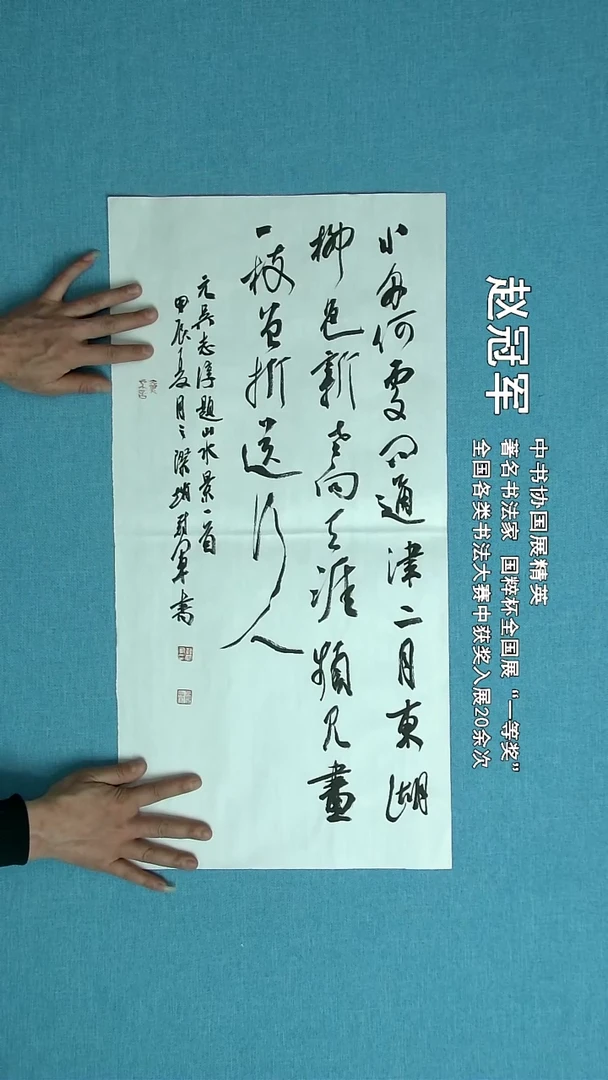 赵冠军
中书协国展精英
著名书法家 国粹杯全国展“一等奖”
全国各类书法大赛中获奖入展20余次
小舟何處问通津二月東湖
柳色新老向天涯頻見畫
一枝曾折送行人
元吴志淳題山水景一首
甲辰夏月之深趙冠軍書